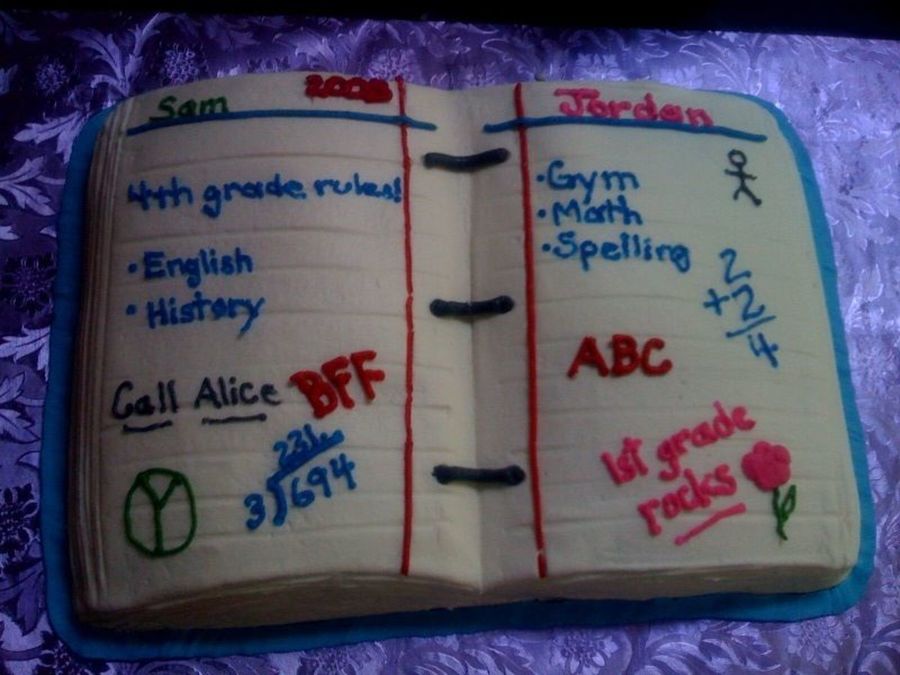 Sam
4th grade rules!
• English
• History
Call Alice BFF
231
3)694
Jordan
• Gym
• Math
• Spelling
2
+2
4
ABC
1st grade
rocks